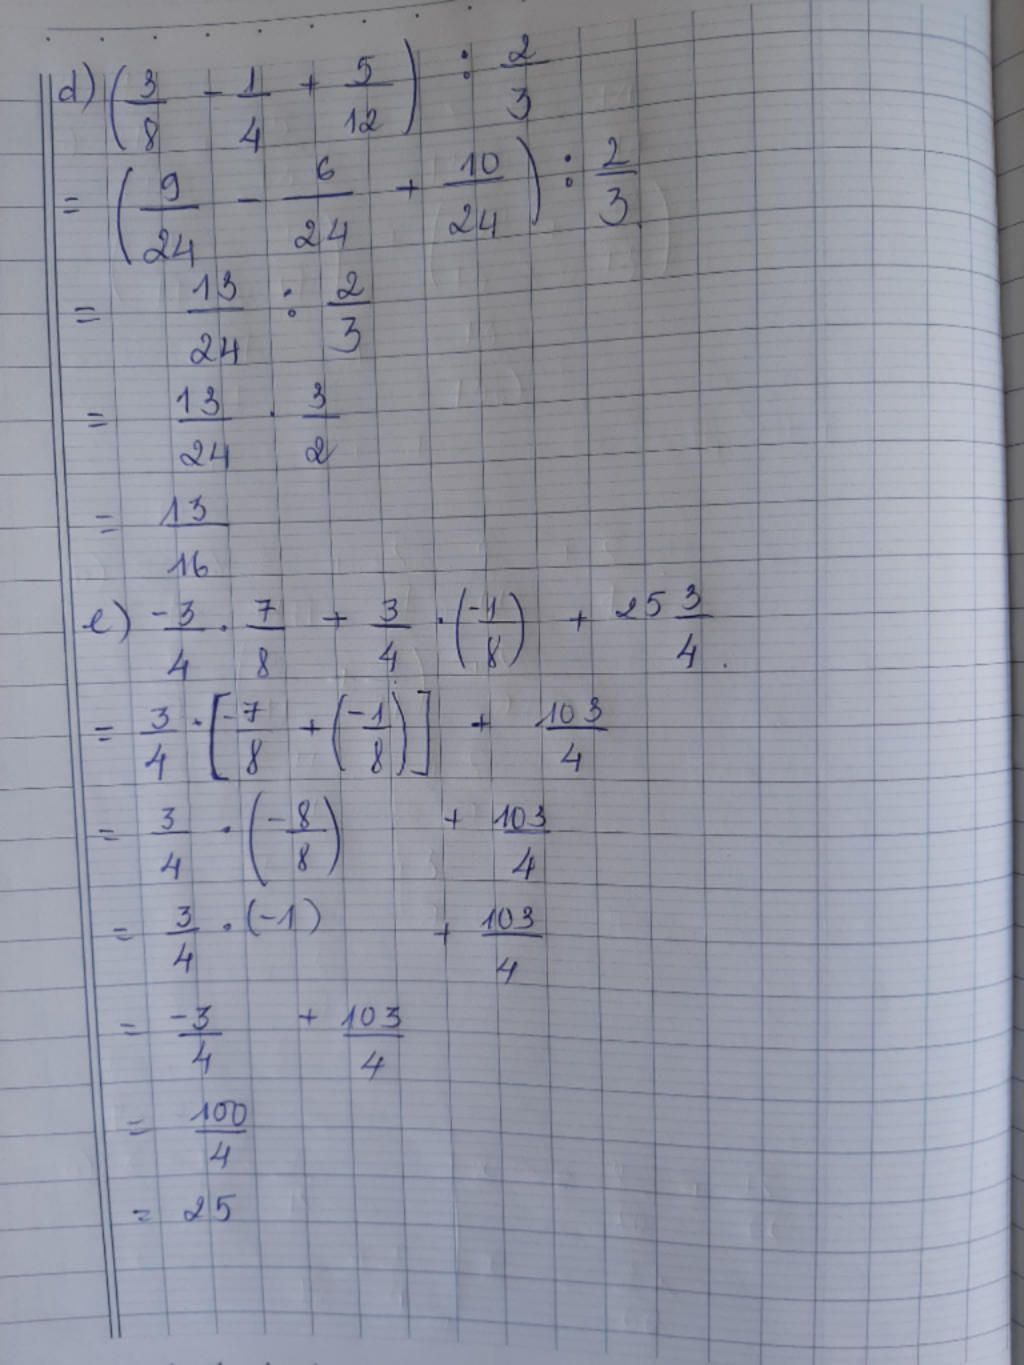 d) (3/8 - 1/4 + 5/12) : 2/3
= (9/24 - 6/24 + 10/24) : 2/3
= 13/24 : 2/3
= 13/24 . 3/2
= 13/16
e) -3/4 . 7/8 + 3/4 . (-1/8) + 25 3/4 .
= 3/4 . [-7/8 + (-1/8)] + 103/4
= 3/4 . (-8/8) + 103/4
= 3/4 . (-1) + 103/4
= -3/4 + 103/4
= 100/4
= 25